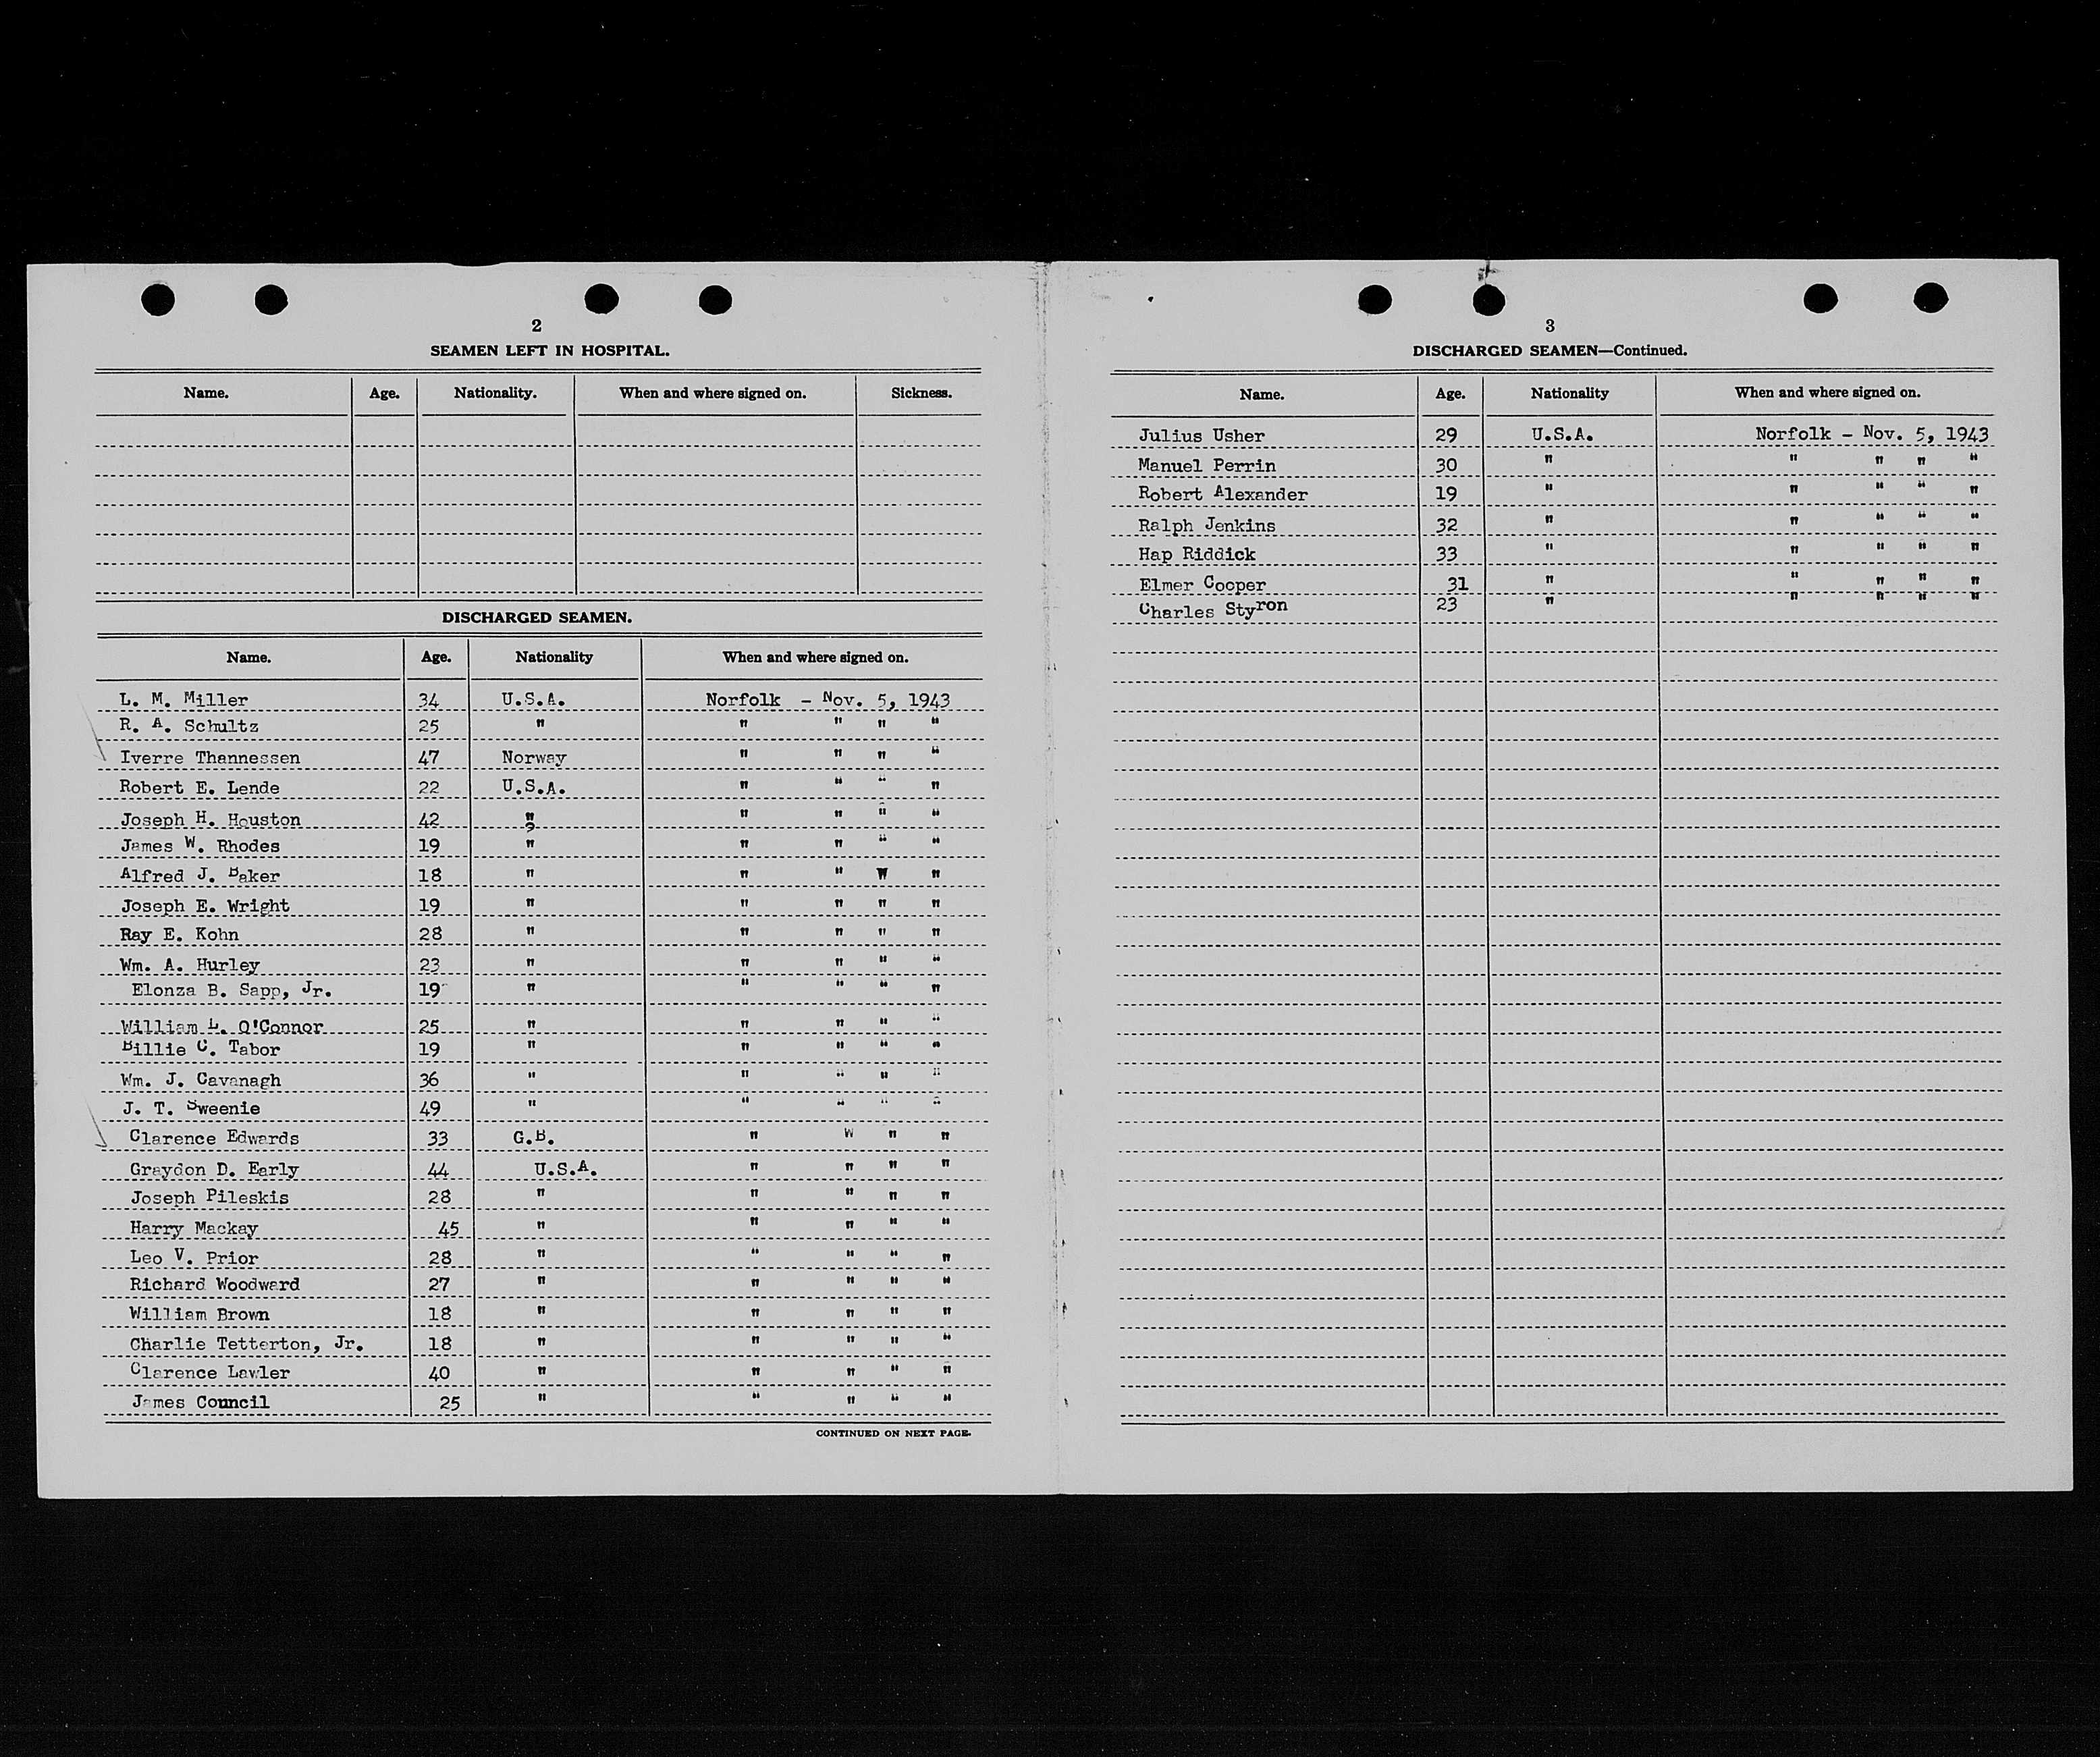 2
SEAMEN LEFT IN HOSPITAL.
Name. Age. Nationality. When and where signed on. Sickness.
DISCHARGED SEAMEN.
Name. Age. Nationality When and where signed on.
L. M. Miller 34 U.S.A. Norfolk - Nov. 5, 1943
R. A. Schultz 25 " " " " "
Iverre Thannessen 47 Norway " " " "
Robert E. Lende 22 U.S.A. " " " "
Joseph H. Houston 42 " " " " "
James W. Rhodes 19 " " " " "
Alfred J. Baker 18 " " " W "
Joseph E. Wright 19 " " " " "
Ray E. Kohn 28 " " " " "
Wm. A. Hurley 23 " " " " "
Elonza B. Sapp, Jr. 19 " " " " "
William L. O'Connor 25 " " " " "
Billie C. Tabor 19 " " " " "
Wm. J. Cavanagh 36 " " " " "
J. T. Sweenie 49 " " " " "
Clarence Edwards 33 G.B. " W " "
Graydon D. Early 44 U.S.A. " " " "
Joseph Pileskis 28 " " " " "
Harry Mackay 45 " " " " "
Leo V. Prior 28 " " " " "
Richard Woodward 27 " " " " "
William Brown 18 " " " " "
Charlie Tetterton, Jr. 18 " " " " "
Clarence Lawler 40 " " " " "
James Council 25 " " " " "
CONTINUED ON NEXT PAGE.
3
DISCHARGED SEAMEN—Continued.
Name. Age. Nationality When and where signed on.
Julius Usher 29 U.S.A. Norfolk - Nov. 5, 1943
Manuel Perrin 30 " " " " "
Robert Alexander 19 " " " " "
Ralph Jenkins 32 " " " " "
Hap Riddick 33 " " " " "
Elmer Cooper 31 " " " " "
Charles Styron 23 " " " " "